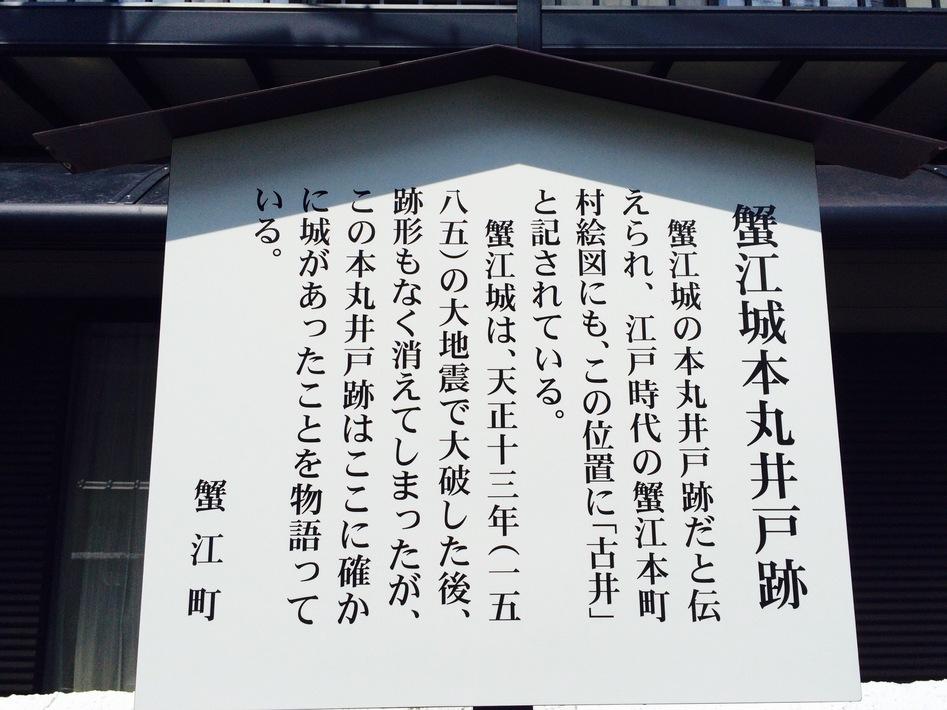 蟹江城本丸井戸跡
蟹江城の本丸井戸跡だと伝
えられ、江戸時代の蟹江本町
村絵図にも、この位置に「古井」
と記されている。
蟹江城は、天正十三年(一五
八五)の大地震で大破した後、
跡形もなく消えてしまったが、
この本丸井戸跡はここに確か
に城があったことを物語って
いる。
蟹江町